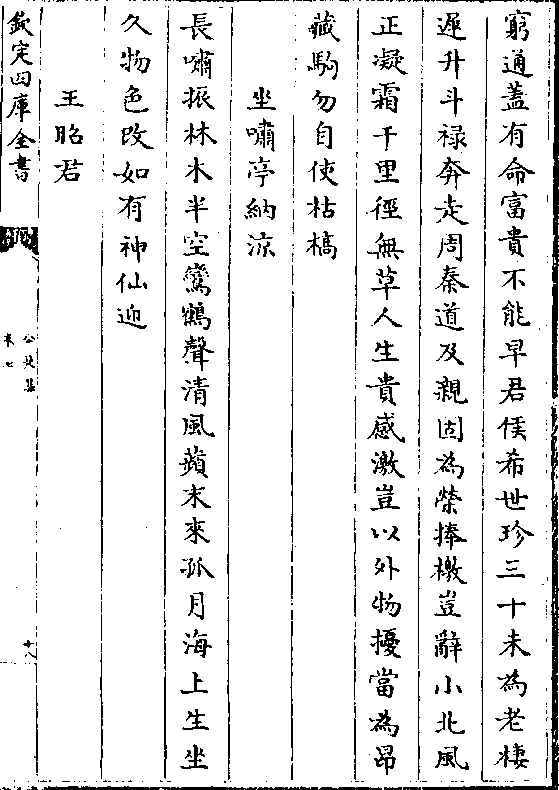 窮通蓋有命富貴不能早君侯希世珍三十未為老棲
遲升斗禄奔走周秦道及親固為榮捧檄豈辭小北風
正凝霜千里徑無草人生貴感激豈以外物擾當為昂
藏駒勿自使枯槁
坐嘯亭納涼
長嘯振林木半空鸞鶴聲清風蘋末來孤月海上生坐
久物色改如有神仙迎
王昭君
欽定四庫全書
公是集
卷七
十八